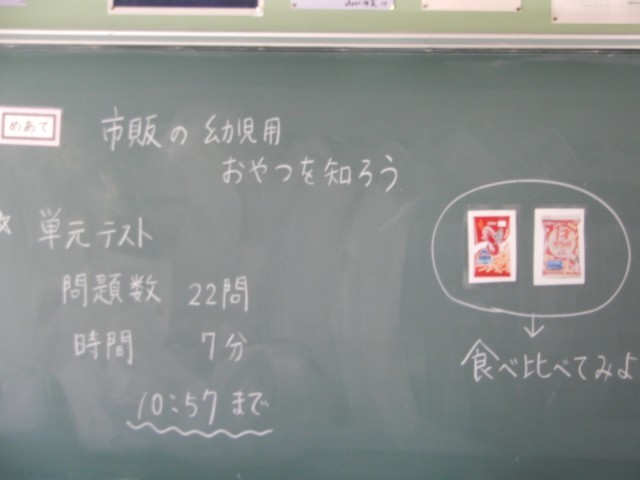 めあて
市販の幼児用
おやつを知ろう
単元テスト
問題数 22問
時間 7分
10:57まで
食べ比べてみよ